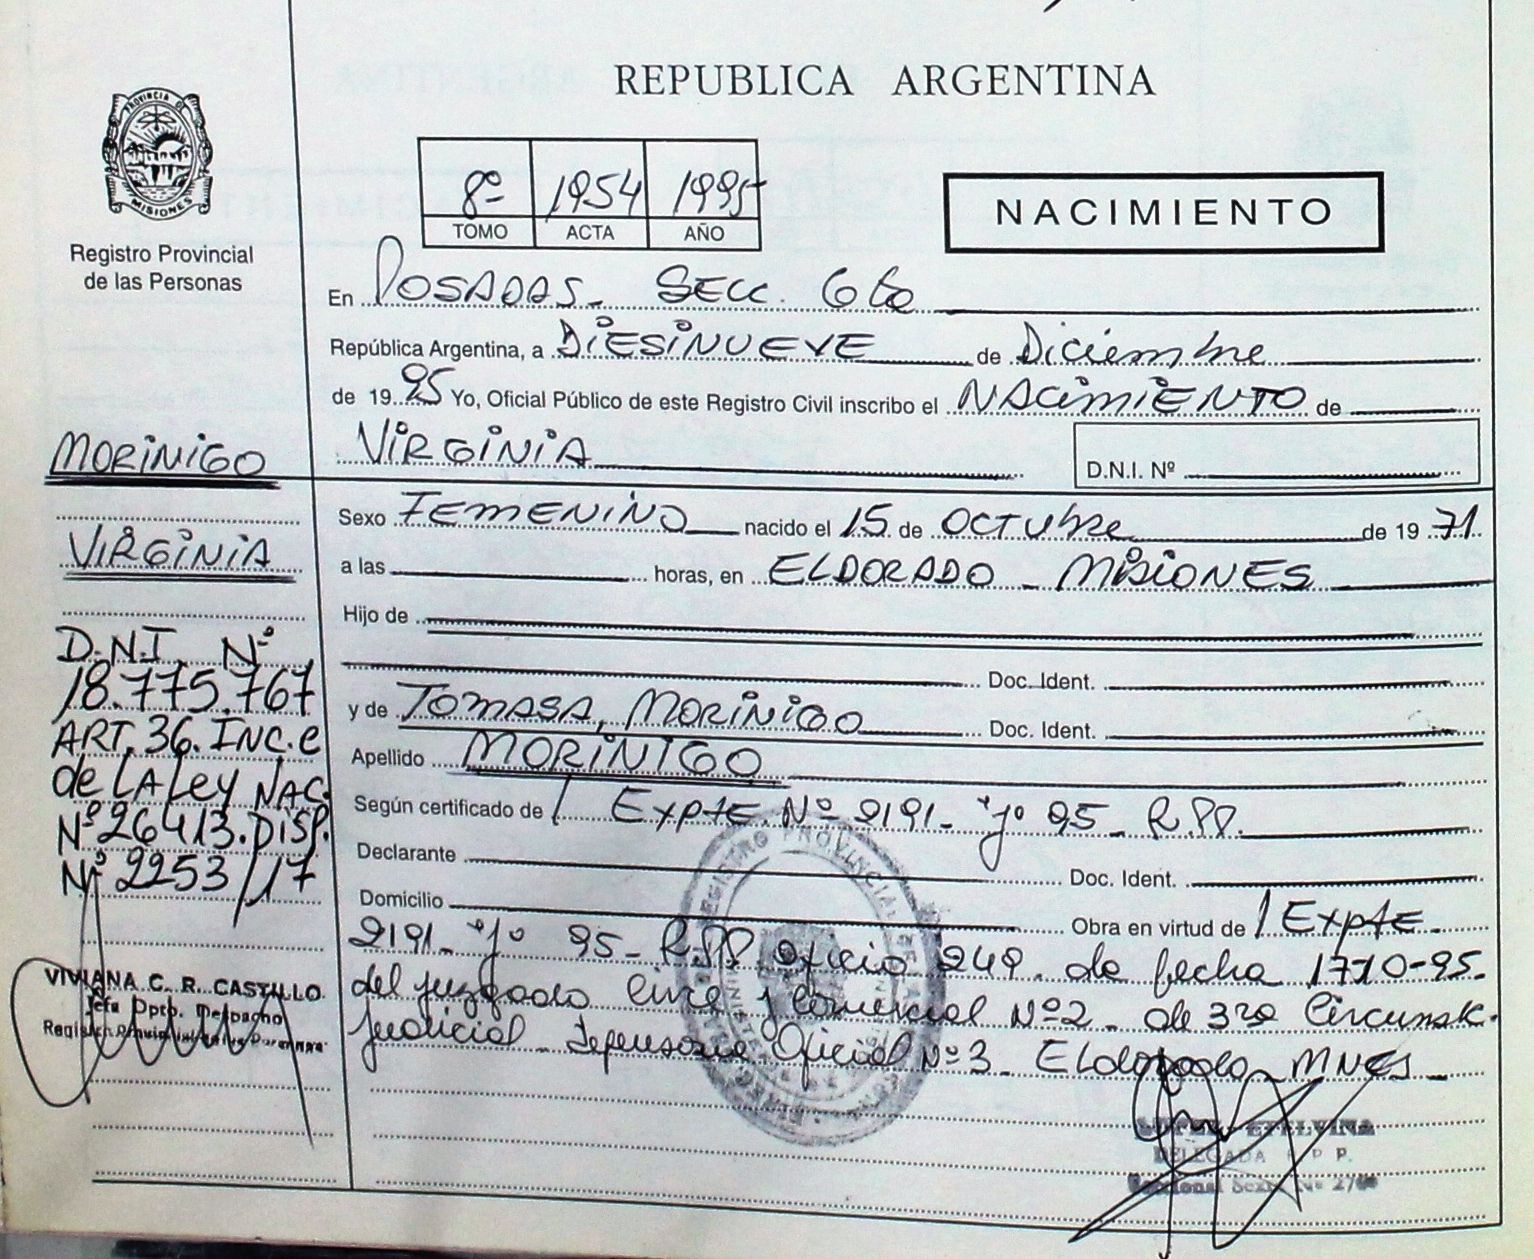 REPUBLICA ARGENTINA
PROVINCIA DE
MISIONES
Registro Provincial
de las Personas
8º 1954 1995
TOMO ACTA AÑO
NACIMIENTO
En POSADAS - SECC. 6ta
República Argentina, a DIESINUEVE de Diciembre
de 19 95 Yo, Oficial Público de este Registro Civil inscribo el NACIMIENTO de
VIRGINIA
D.N.I. Nº
Sexo FEMENINO nacido el 15 de OCTUbre de 19 71.
a las horas, en ELDORADO - MISIONES
Hijo de
Doc. Ident.
y de TOMASA, MORINIGO Doc. Ident.
Apellido MORINIGO
Según certificado de Expte Nº 2191 - "J" 95 - R.PP.
Declarante Doc. Ident.
Domicilio Obra en virtud de Expte
2191 - "J" 95 - R.PP. oficio 249. de fecha 1710-95.
del juzgado Civil y Comercial Nº 2 - de 3ra Circunsk.
Judicial - Defensoria Oficial Nº 3 - Eldorado - MNES
MORINIGO
VIRGINIA
D.N.I Nº
18.775.767
ART. 36. INC. e
de LA Ley NAC.
Nº 26413. DISP.
Nº 2253/17
VIVIANA C. R. CASTILLO
Jefa Dpto. Despacho
REGISTRO PROVINCIAL
ETELVINA
DELEGADA R P P.